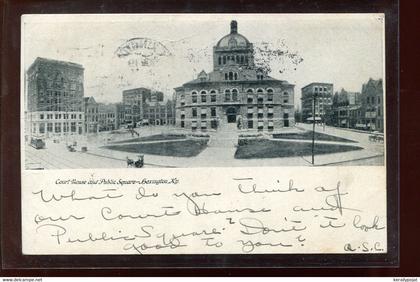 Court House and Public Square - Lexington, Ky.
What do you think of
our Court House and
Public Square? Don't it look
good to you?
A.S.C.